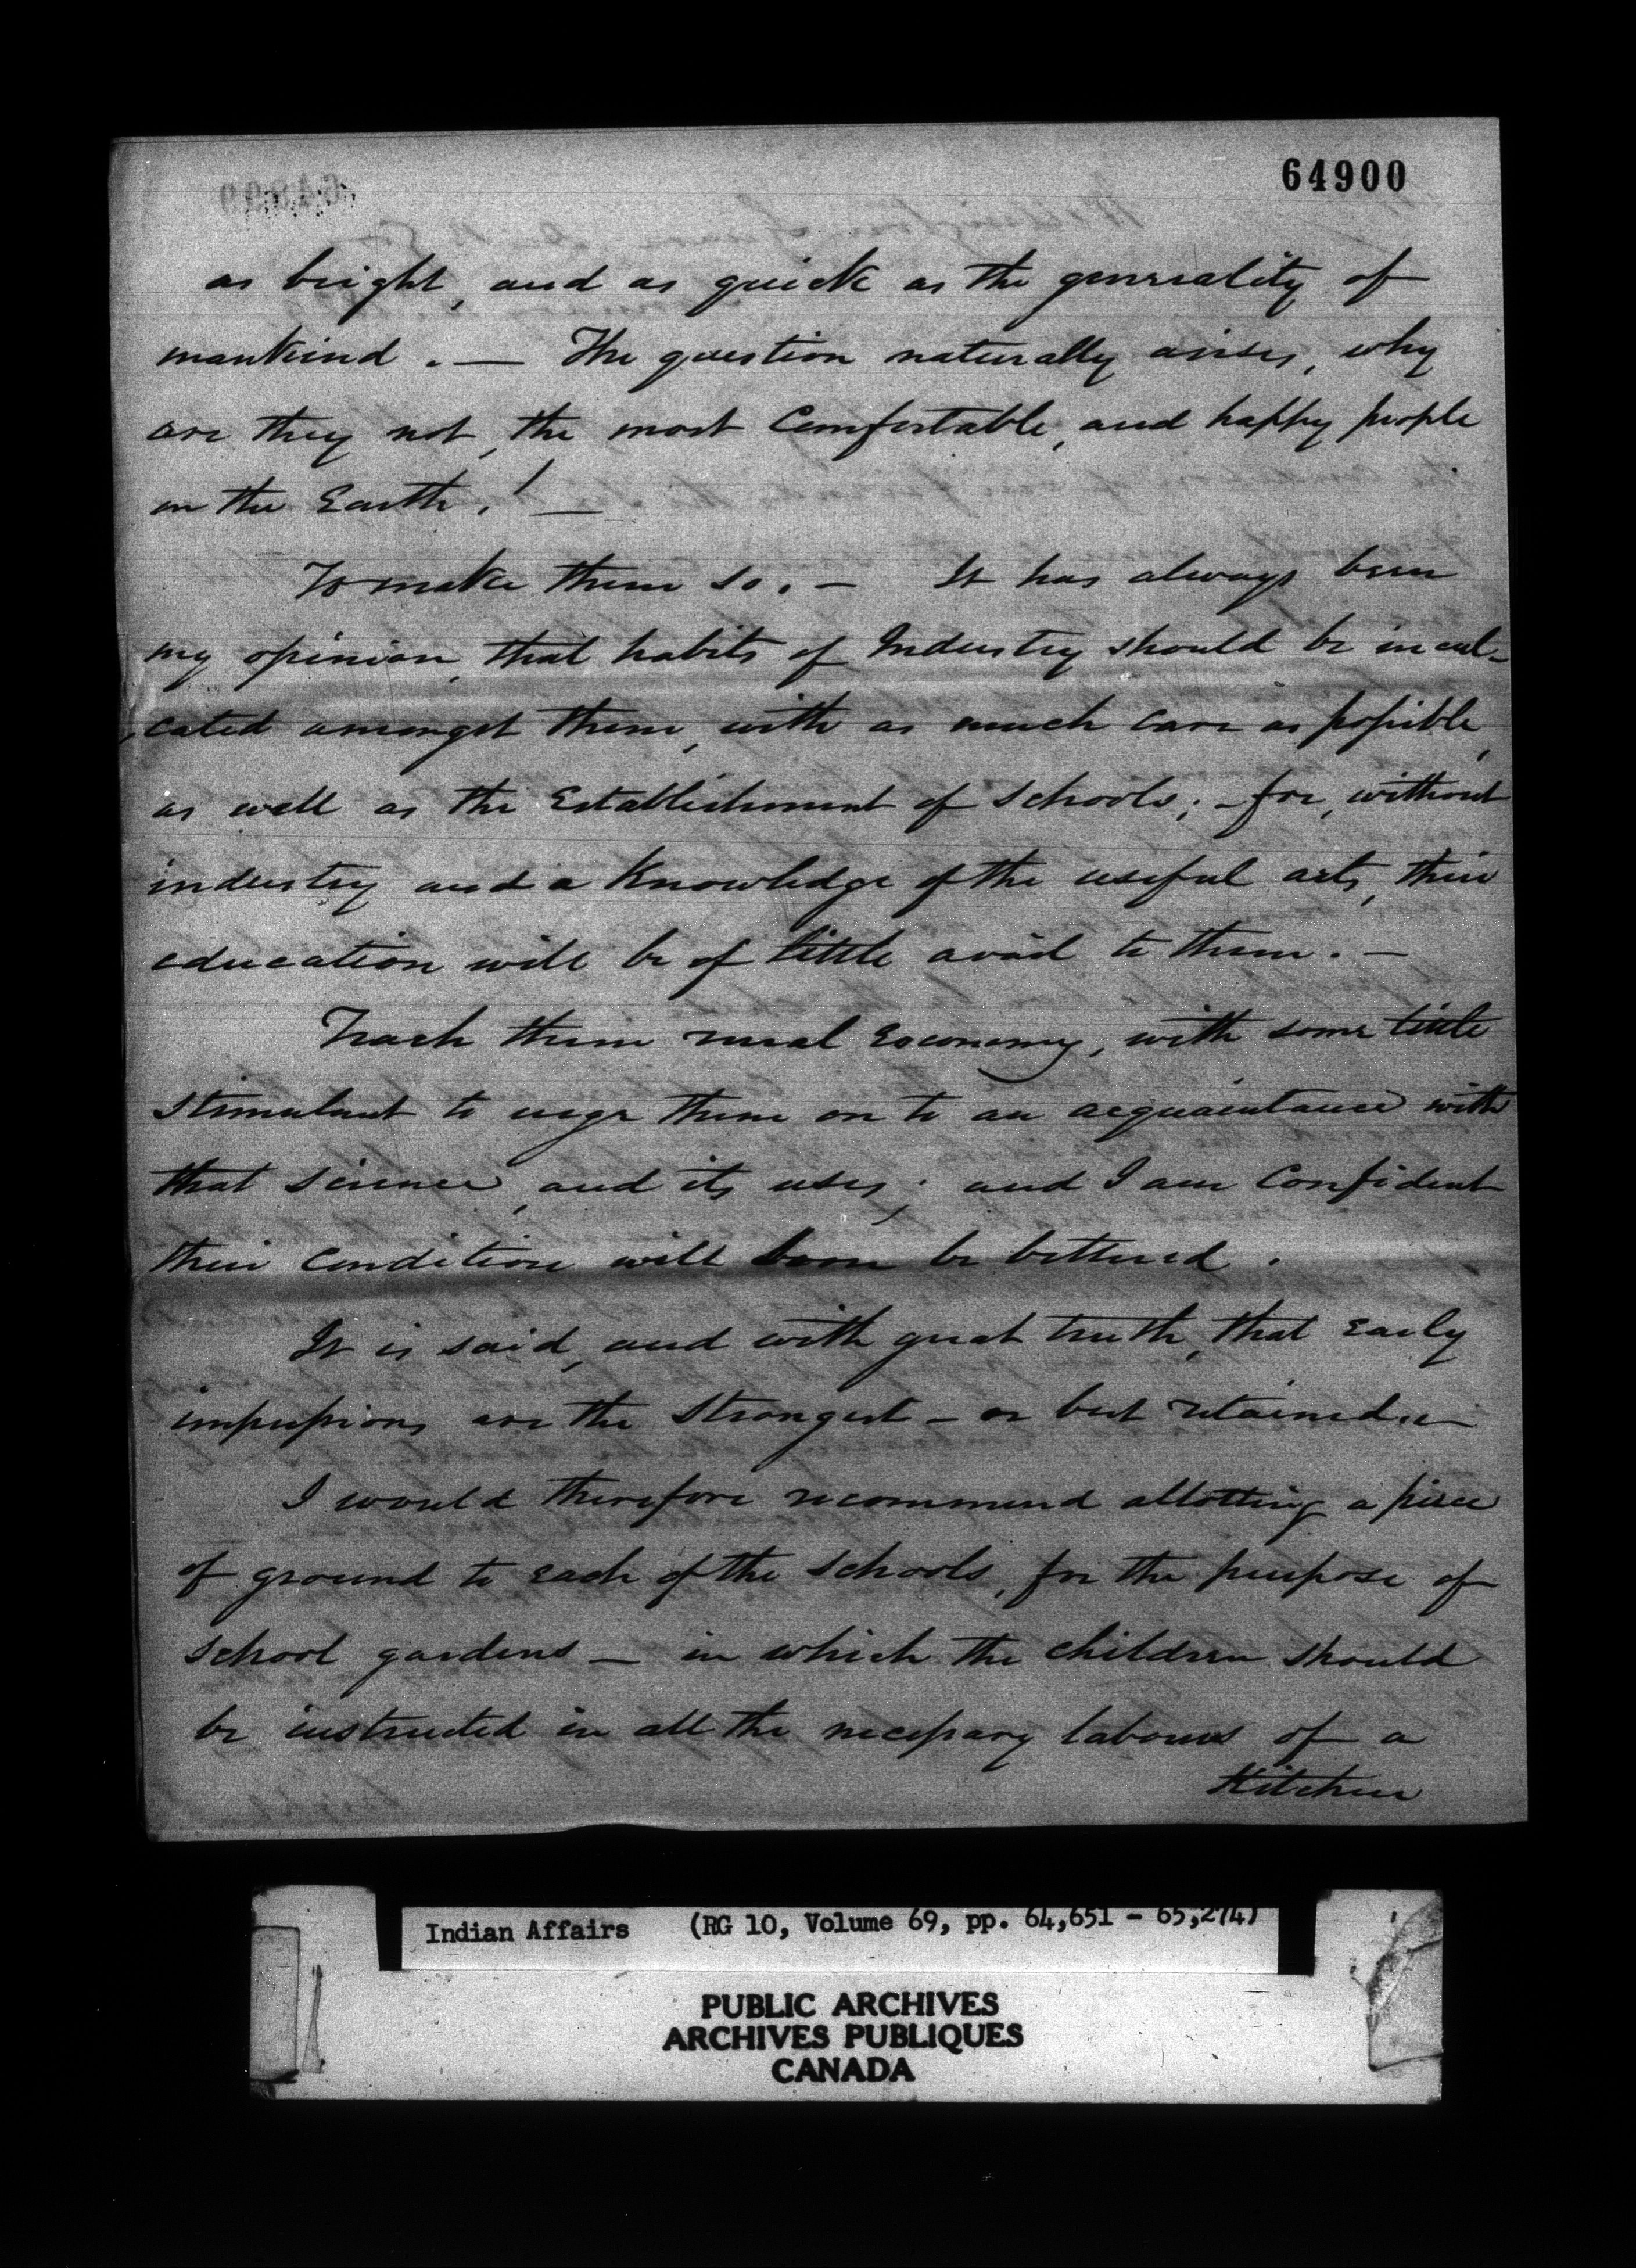 64900
as bright, and as quick as the generality of
mankind. — The question naturally arises, why
are they not, the most Comfortable, and happy people
on the Earth! —
To make them so. — It has always been
my opinion, that habits of Industry should be incul-
cated amongst them, with as much care as possible,
as well as the Establishment of Schools; - for, without
industry and a Knowledge of the useful arts, their
education will be of little avail to them. —
Teach them rural Economy, with some little
stimulant to urge them on to an acquaintance with
that science, and its uses; and I am Confident
their Condition will soon be bettered.
It is said, and with great truth, that Early
impressions are the Strongest - or best retained. —
I would therefore recommend allotting a piece
of ground to Each of the Schools, for the purpose of
School gardens — in which the Children should
be instructed in all the necessary labours of a
Kitchen
Indian Affairs (RG 10, Volume 69, pp. 64,651 - 65,274)
PUBLIC ARCHIVES
ARCHIVES PUBLIQUES
CANADA